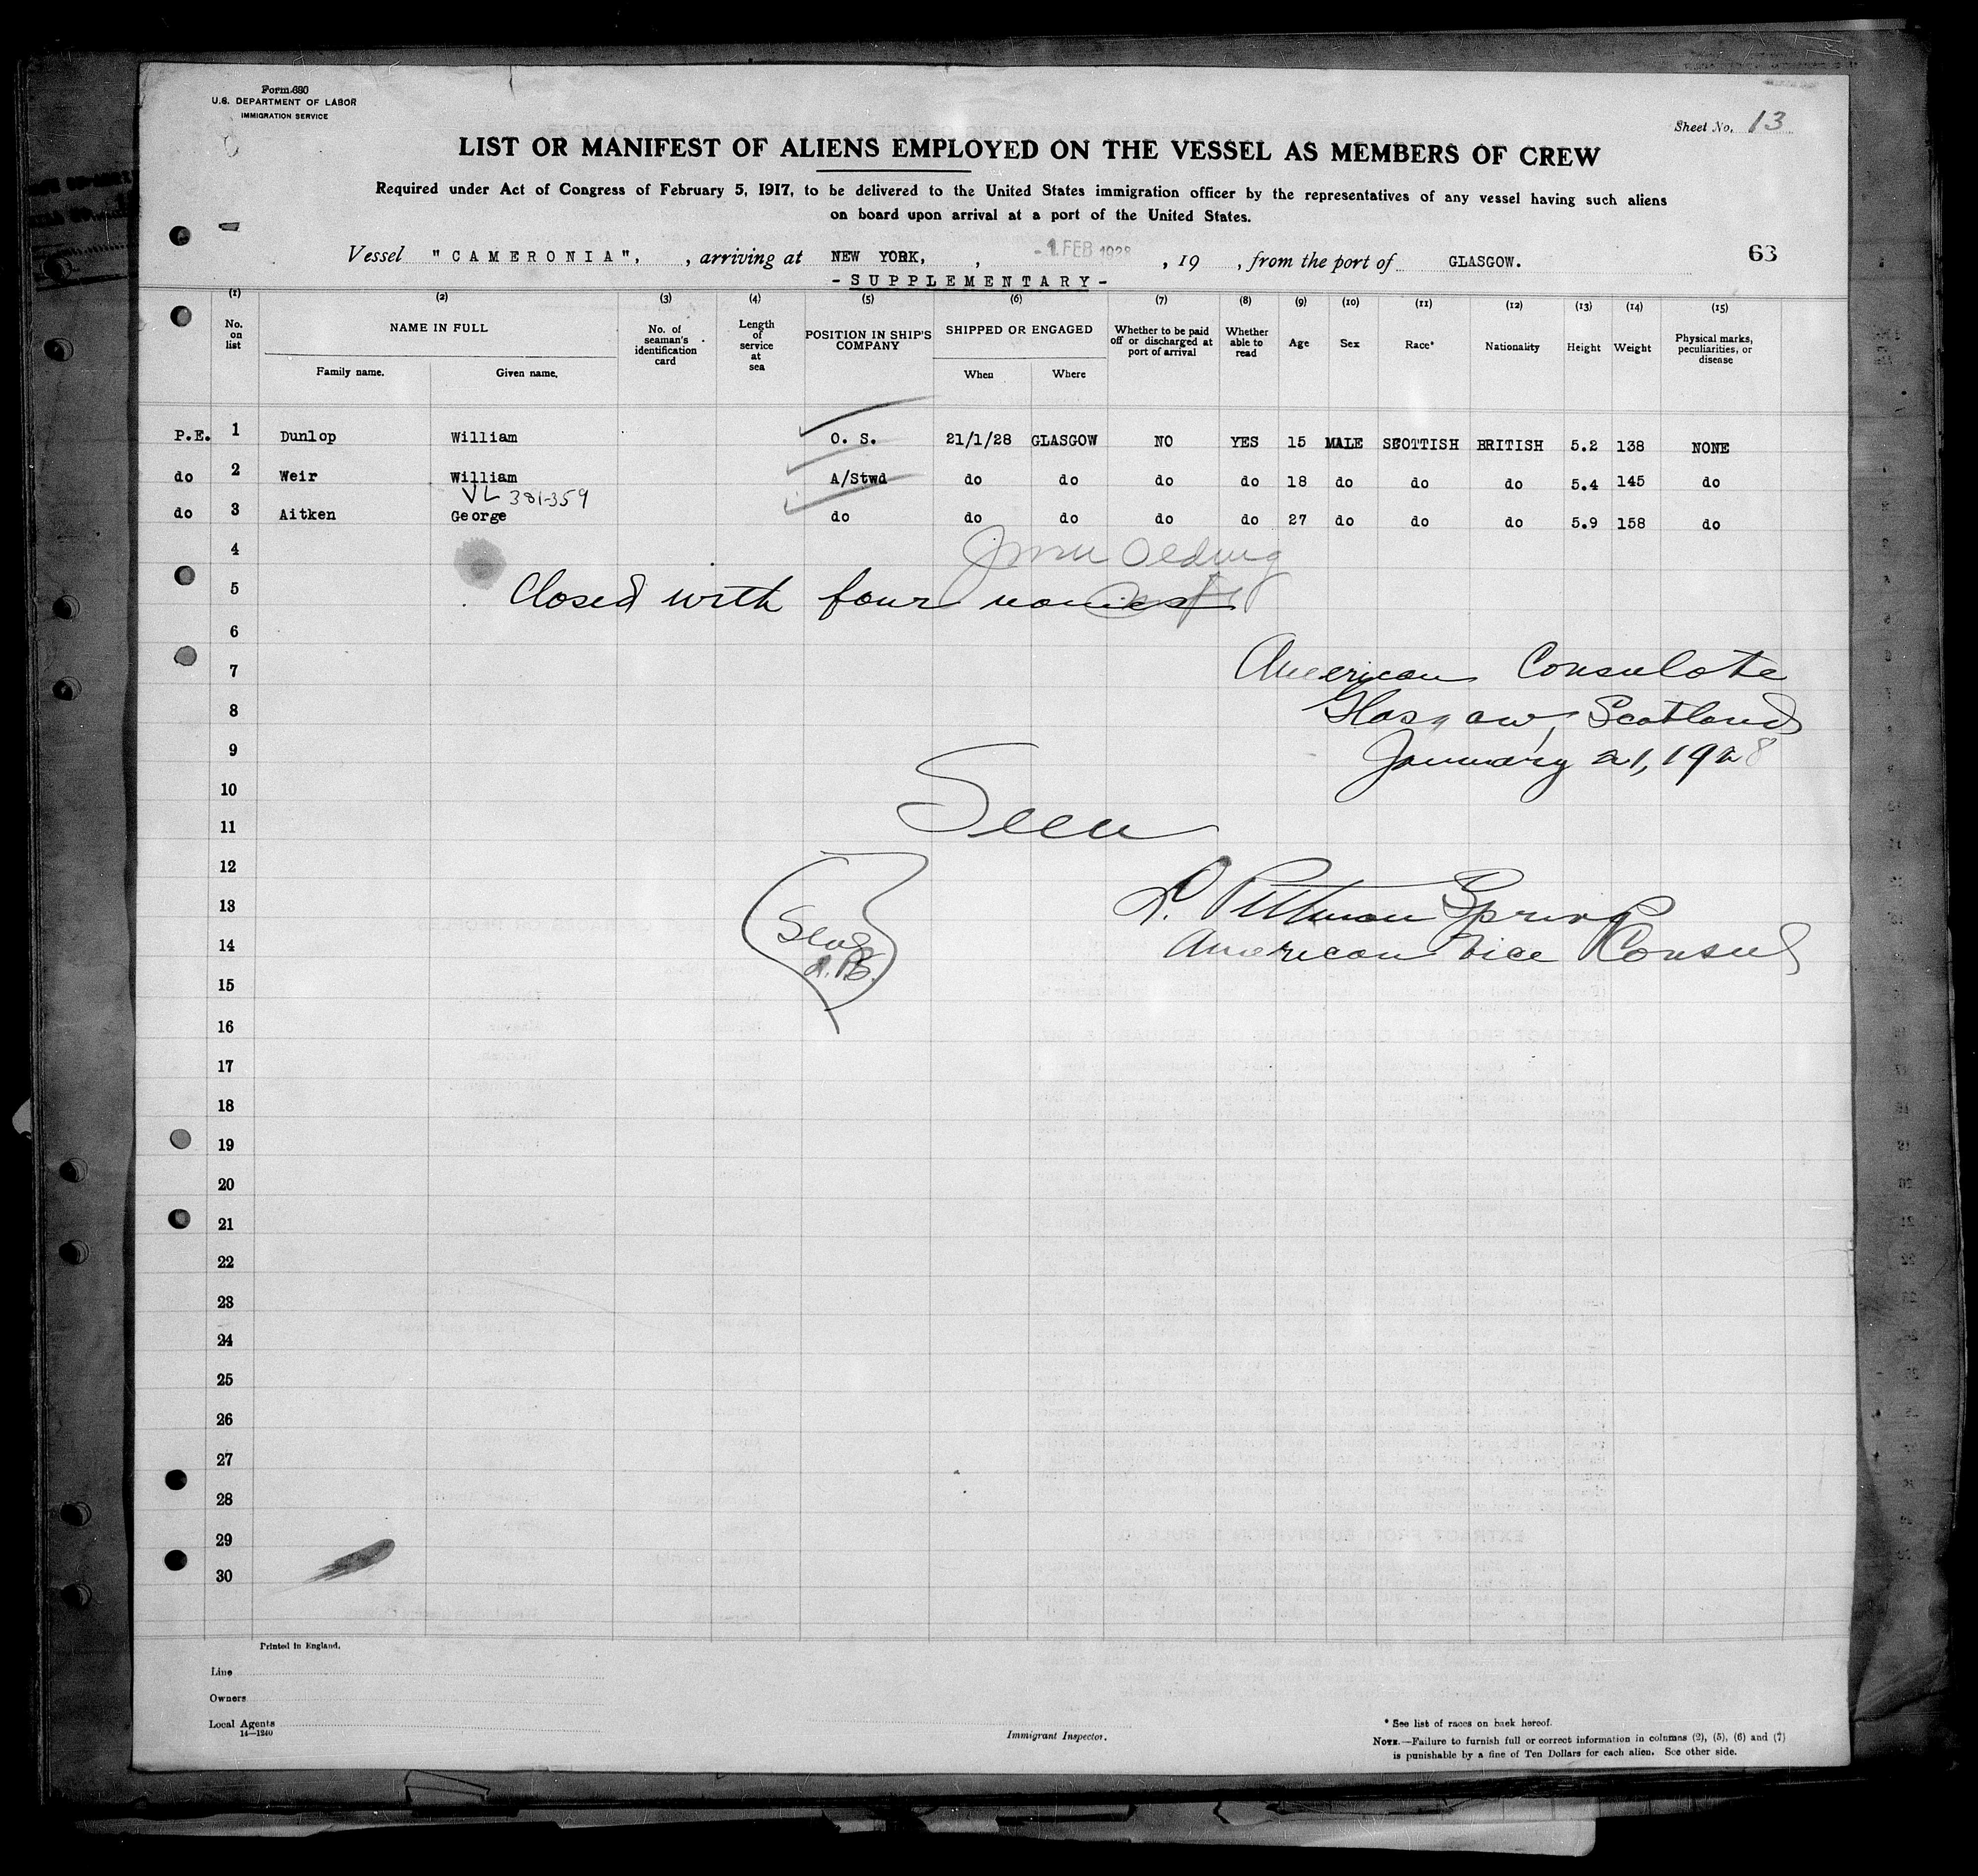 Form 680
U.S. DEPARTMENT OF LABOR
IMMIGRATION SERVICE
Sheet No. 13
LIST OR MANIFEST OF ALIENS EMPLOYED ON THE VESSEL AS MEMBERS OF CREW
Required under Act of Congress of February 5, 1917, to be delivered to the United States immigration officer by the representatives of any vessel having such aliens
on board upon arrival at a port of the United States.
Vessel "CAMERONIA", , arriving at NEW YORK, , -1 FEB 1928 , 19 , from the port of GLASGOW. 63
-SUPPLEMENTARY-
(1) (2) (3) (4) (5) (6) (7) (8) (9) (10) (11) (12) (13) (14) (15)
No. on list NAME IN FULL No. of seaman's identification card Length of service at sea POSITION IN SHIP'S COMPANY SHIPPED OR ENGAGED Whether to be paid off or discharged at port of arrival Whether able to read Age Sex Race* Nationality Height Weight Physical marks, peculiarities, or disease
Family name. Given name. When Where
P.E. 1 Dunlop William O. S. 21/1/28 GLASGOW NO YES 15 MALE SCOTTISH BRITISH 5.2 138 NONE
do 2 Weir William A/Stwd do do do do 18 do do do 5.4 145 do
VL 381-359
do 3 Aitken George do do do do do 27 do do do 5.9 158 do
4
5 Closed with four names
6
7 American Consulate
8 Glasgow, Scotland
9 January 21, 1928
10
11 Seen
12
13 Pittman Spring
14 American Vice Consul
15
16
17
18
19
20
21
22
23
24
25
26
27
28
29
30
Printed in England.
Line
Owners
Local Agents
14—1240
Immigrant Inspector.
* See list of races on back hereof.
NOTE.—Failure to furnish full or correct information in columns (2), (5), (6) and (7)
is punishable by a fine of Ten Dollars for each alien. See other side.